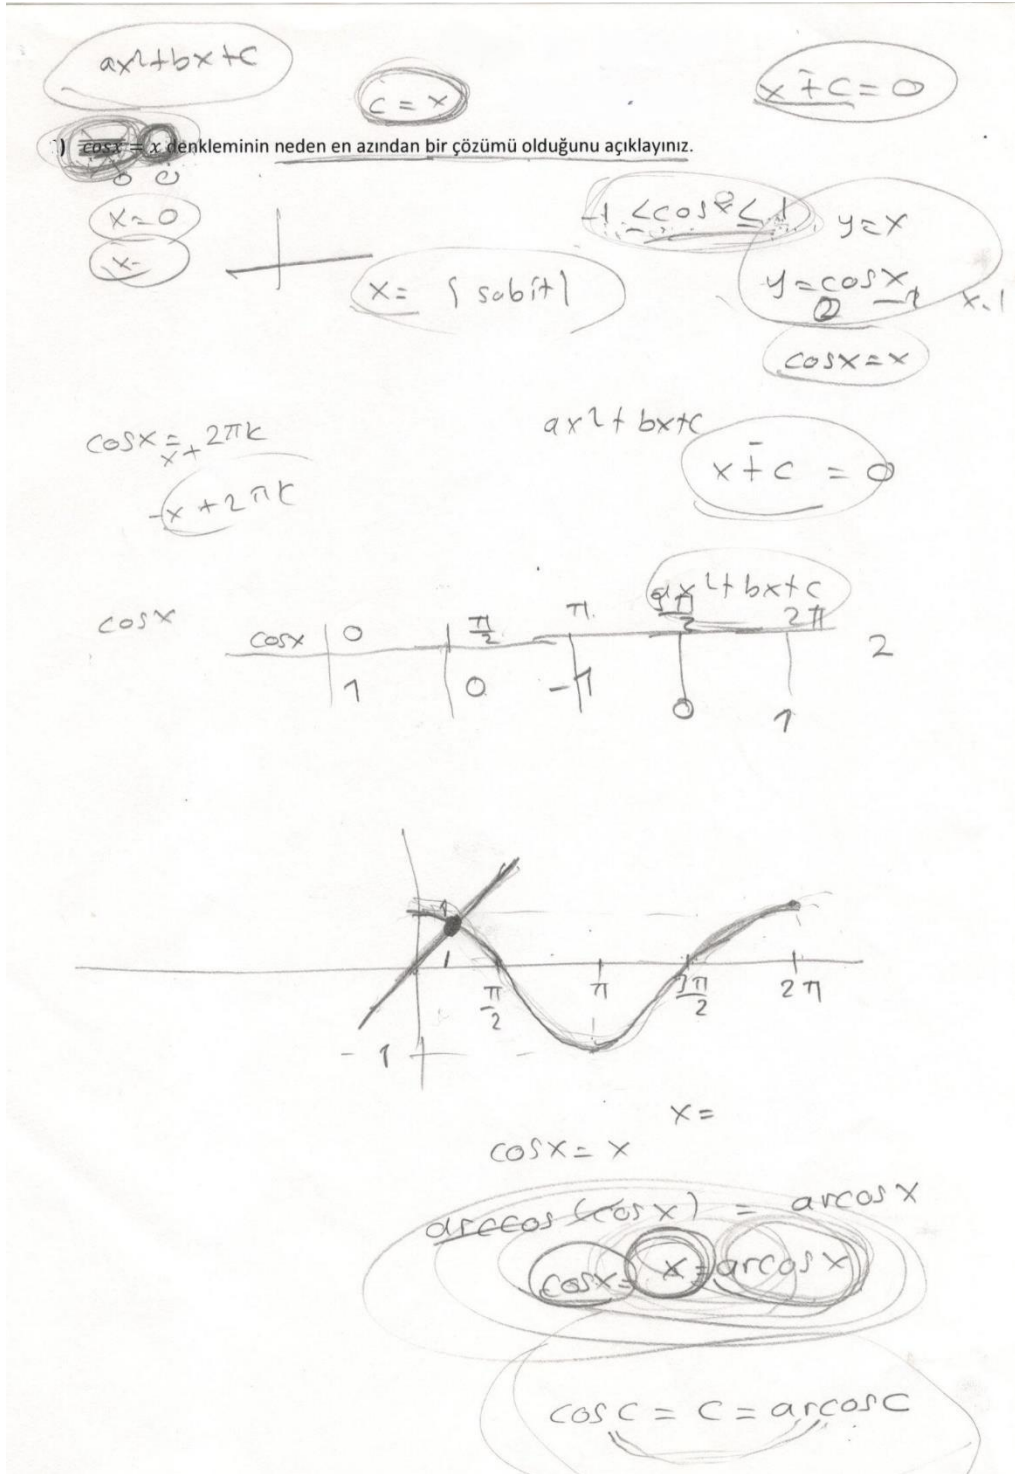 ax²+bx+c
c = x
x ∓ c = 0
) cosx = x denkleminin neden en azından bir çözümü olduğunu açıklayınız.
x=0
x=
x= {sabit}
-1 ≤ cosx ≤ 1
y=x
y=cosx
cosx=x
cosx = x+2πk
-x+2πk
ax²+bx+c
x ∓ c = 0
cosx
ax²+bx+c
cosx 0 π/2 π 3π/2 2π 2
1 0 -1 0 1
1
1 π/2 π 3π/2 2π
-1
x=
cosx = x
arccos(cosx) = arcosx
cosx= x = arcosx
cosc = c = arcosc